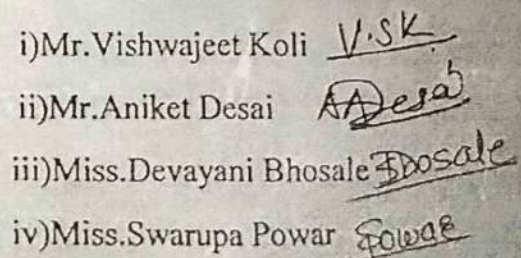 i)Mr.Vishwajeet Koli V.SK.
ii)Mr.Aniket Desai AADesai
iii)Miss.Devayani Bhosale Bhosale
iv)Miss.Swarupa Powar Powar